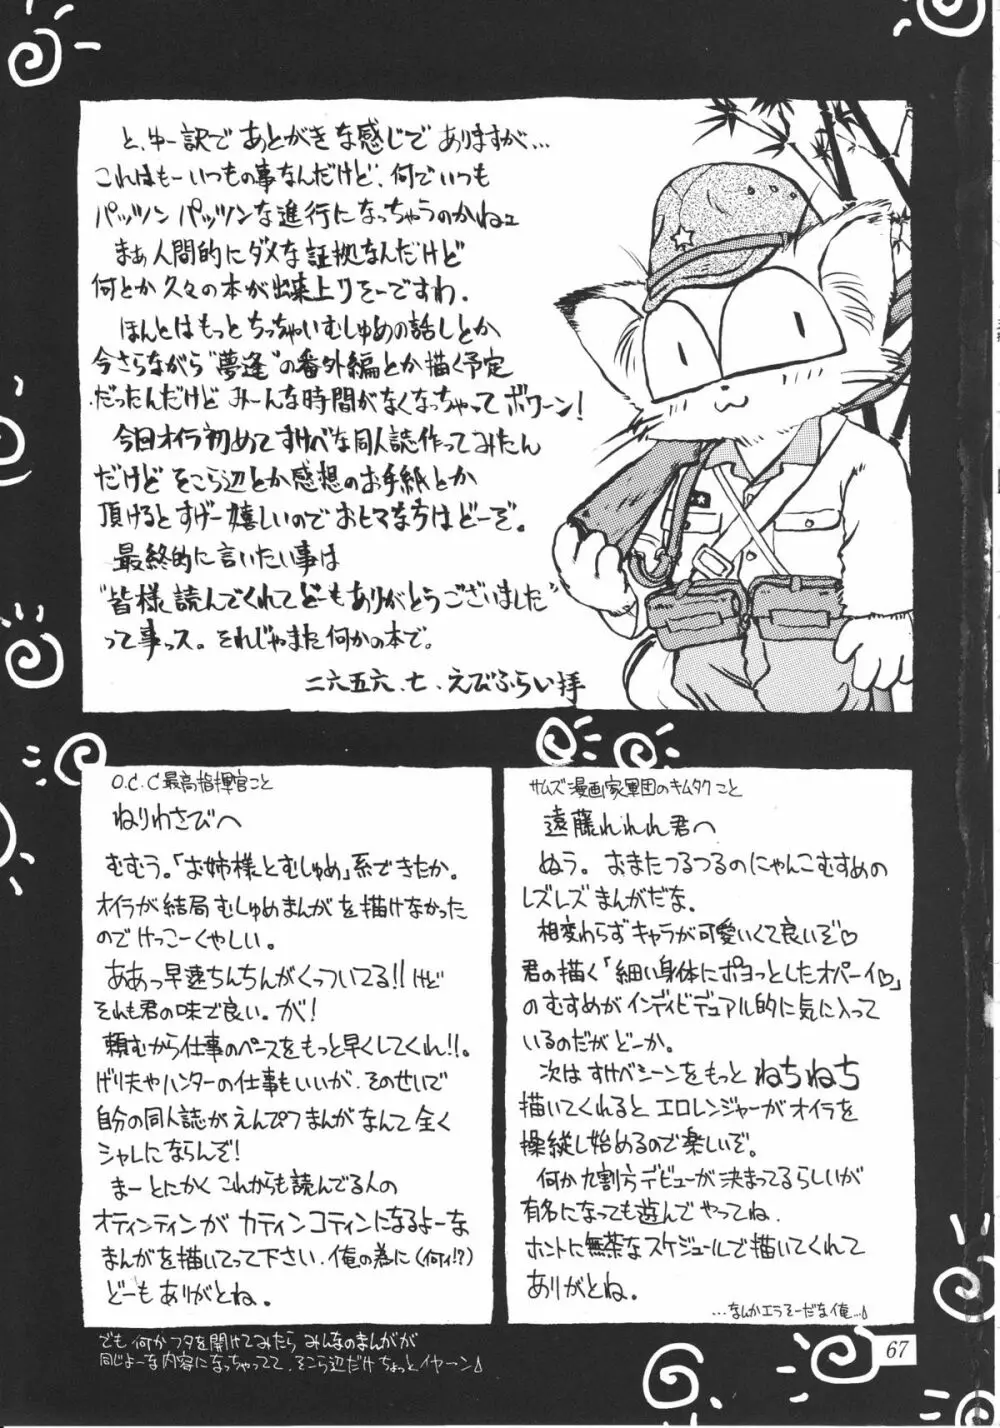 と、ゆー訳で あとがきな感じで ありますが…
これはもーいつもの事なんだけど、何でいつも
パッツン パッツンな進行になっちゃうのかねェ
まぁ人間的にダメな証拠なんだけど
何とか久々の本が出来上りそーですわ。
ほんとはもっとちっちゃいむしゅめの話しとか
今さらながら"夢逢"の番外編とか描く予定
だったんだけど み〜んな時間がなくなっちゃってボワーン!
今回オイラ初めてすけべな同人誌作ってみたん
だけど そこら辺とか感想のお手紙とか
頂けるとすげー嬉しいのでおヒマなちはどーぞ。
最終的に言いたい事は
"皆様読んでくれてどーもありがとうございました"
って事っス。それじゃまた何かの本で。
二六五六、七、えびふらい拝
O.C.C最高指揮官こと
ねりわさびへ
むむう。「お姉様とむしゅめ」系できたか。
オイラが結局むしゅめまんがを描けなかった
のでけっこーくやしい。
ああっ早速ちんちんがくっついてる!!けど
それも君の味で良い。が!
頼むから仕事のペースをもっと早くしてくれ!!。
げり夫やハンターの仕事もいいが、そのせいで
自分の同人誌がえんぴつまんがなんて全く
シャレにならんぞ!
まーとにかくこれからも読んでる人の
オティンティンがカティンコティンになるよーな
まんがを描いてって下さい、俺の為に(何ィ!?)
どーもありがとね。
サムズ漫画家軍団のキムタクこと
遠藤れれれ君へ
ぬう。おまたつるつるのにゃんこむすめの
レズレズまんがだな。
相変わらずキャラが可愛いくて良いぞ♡
君の描く「細い身体にポヨっとしたオパーイ♡」
のむすめがインディビデュアル的に気に入って
いるのだがどーか。
次はすけベシーンをもっとねちねち
描いてくれるとエロレンジャーがオイラを
操縦し始めるので楽しいぞ。
何か九割方デビューが決まってるらしいが
有名になっても遊んでやってね。
ホントに無茶なスケジュールで描いてくれて
ありがとね。
…なんかエラそーだな俺…♪
でも何かフタを開けてみたら みんなのまんがが
同じよーな内容になっちゃってて、そこら辺だけちょっとイヤーン♪
67